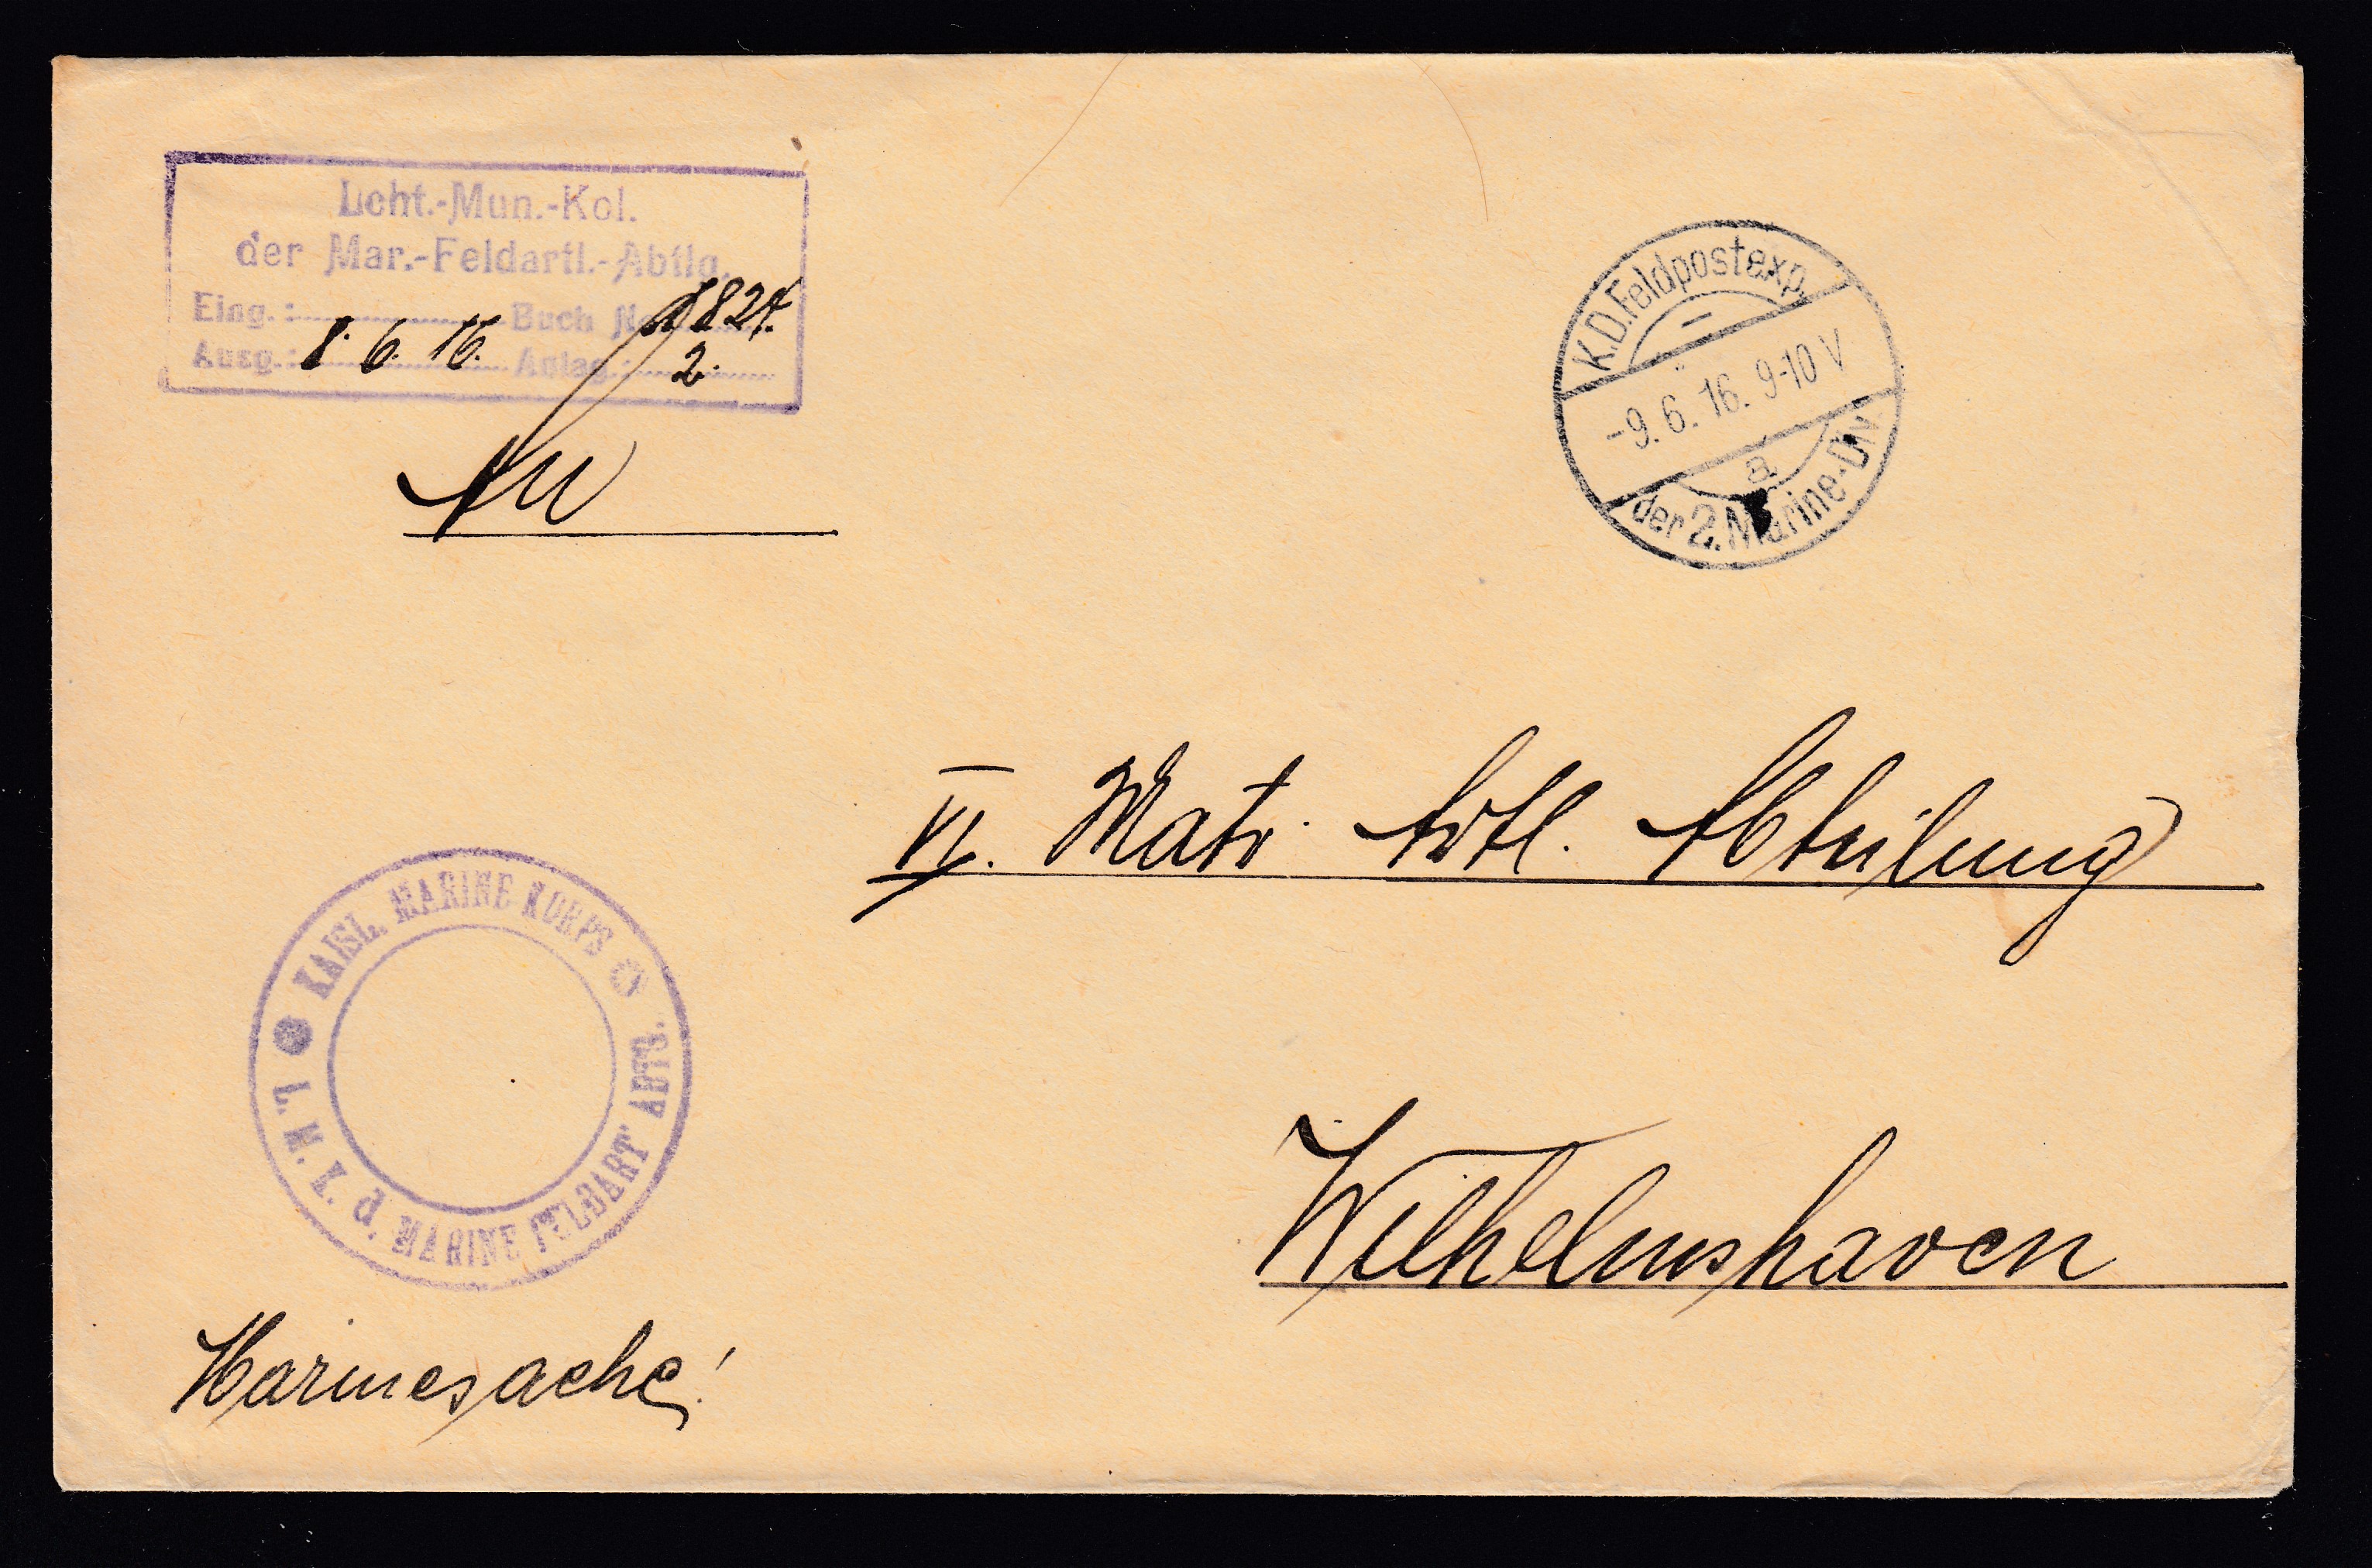 Lcht.-Mun.-Kol.
der Mar.-Feldartl.-Abtlg.
Eing.: Buch No 1824.
Ausg.: 8. 6. 16. Anlag.: 2.
An
K.D.Feldpostexp.
-9. 6. 16. 9-10 V
a
der 2. Marine-Div.
VI. Matr. Artl. Abteilung
KAISL. MARINE KORPS
L. M. K. d. MARINE FELDART ABTL.
Wilhelmshaven
Marinesache!